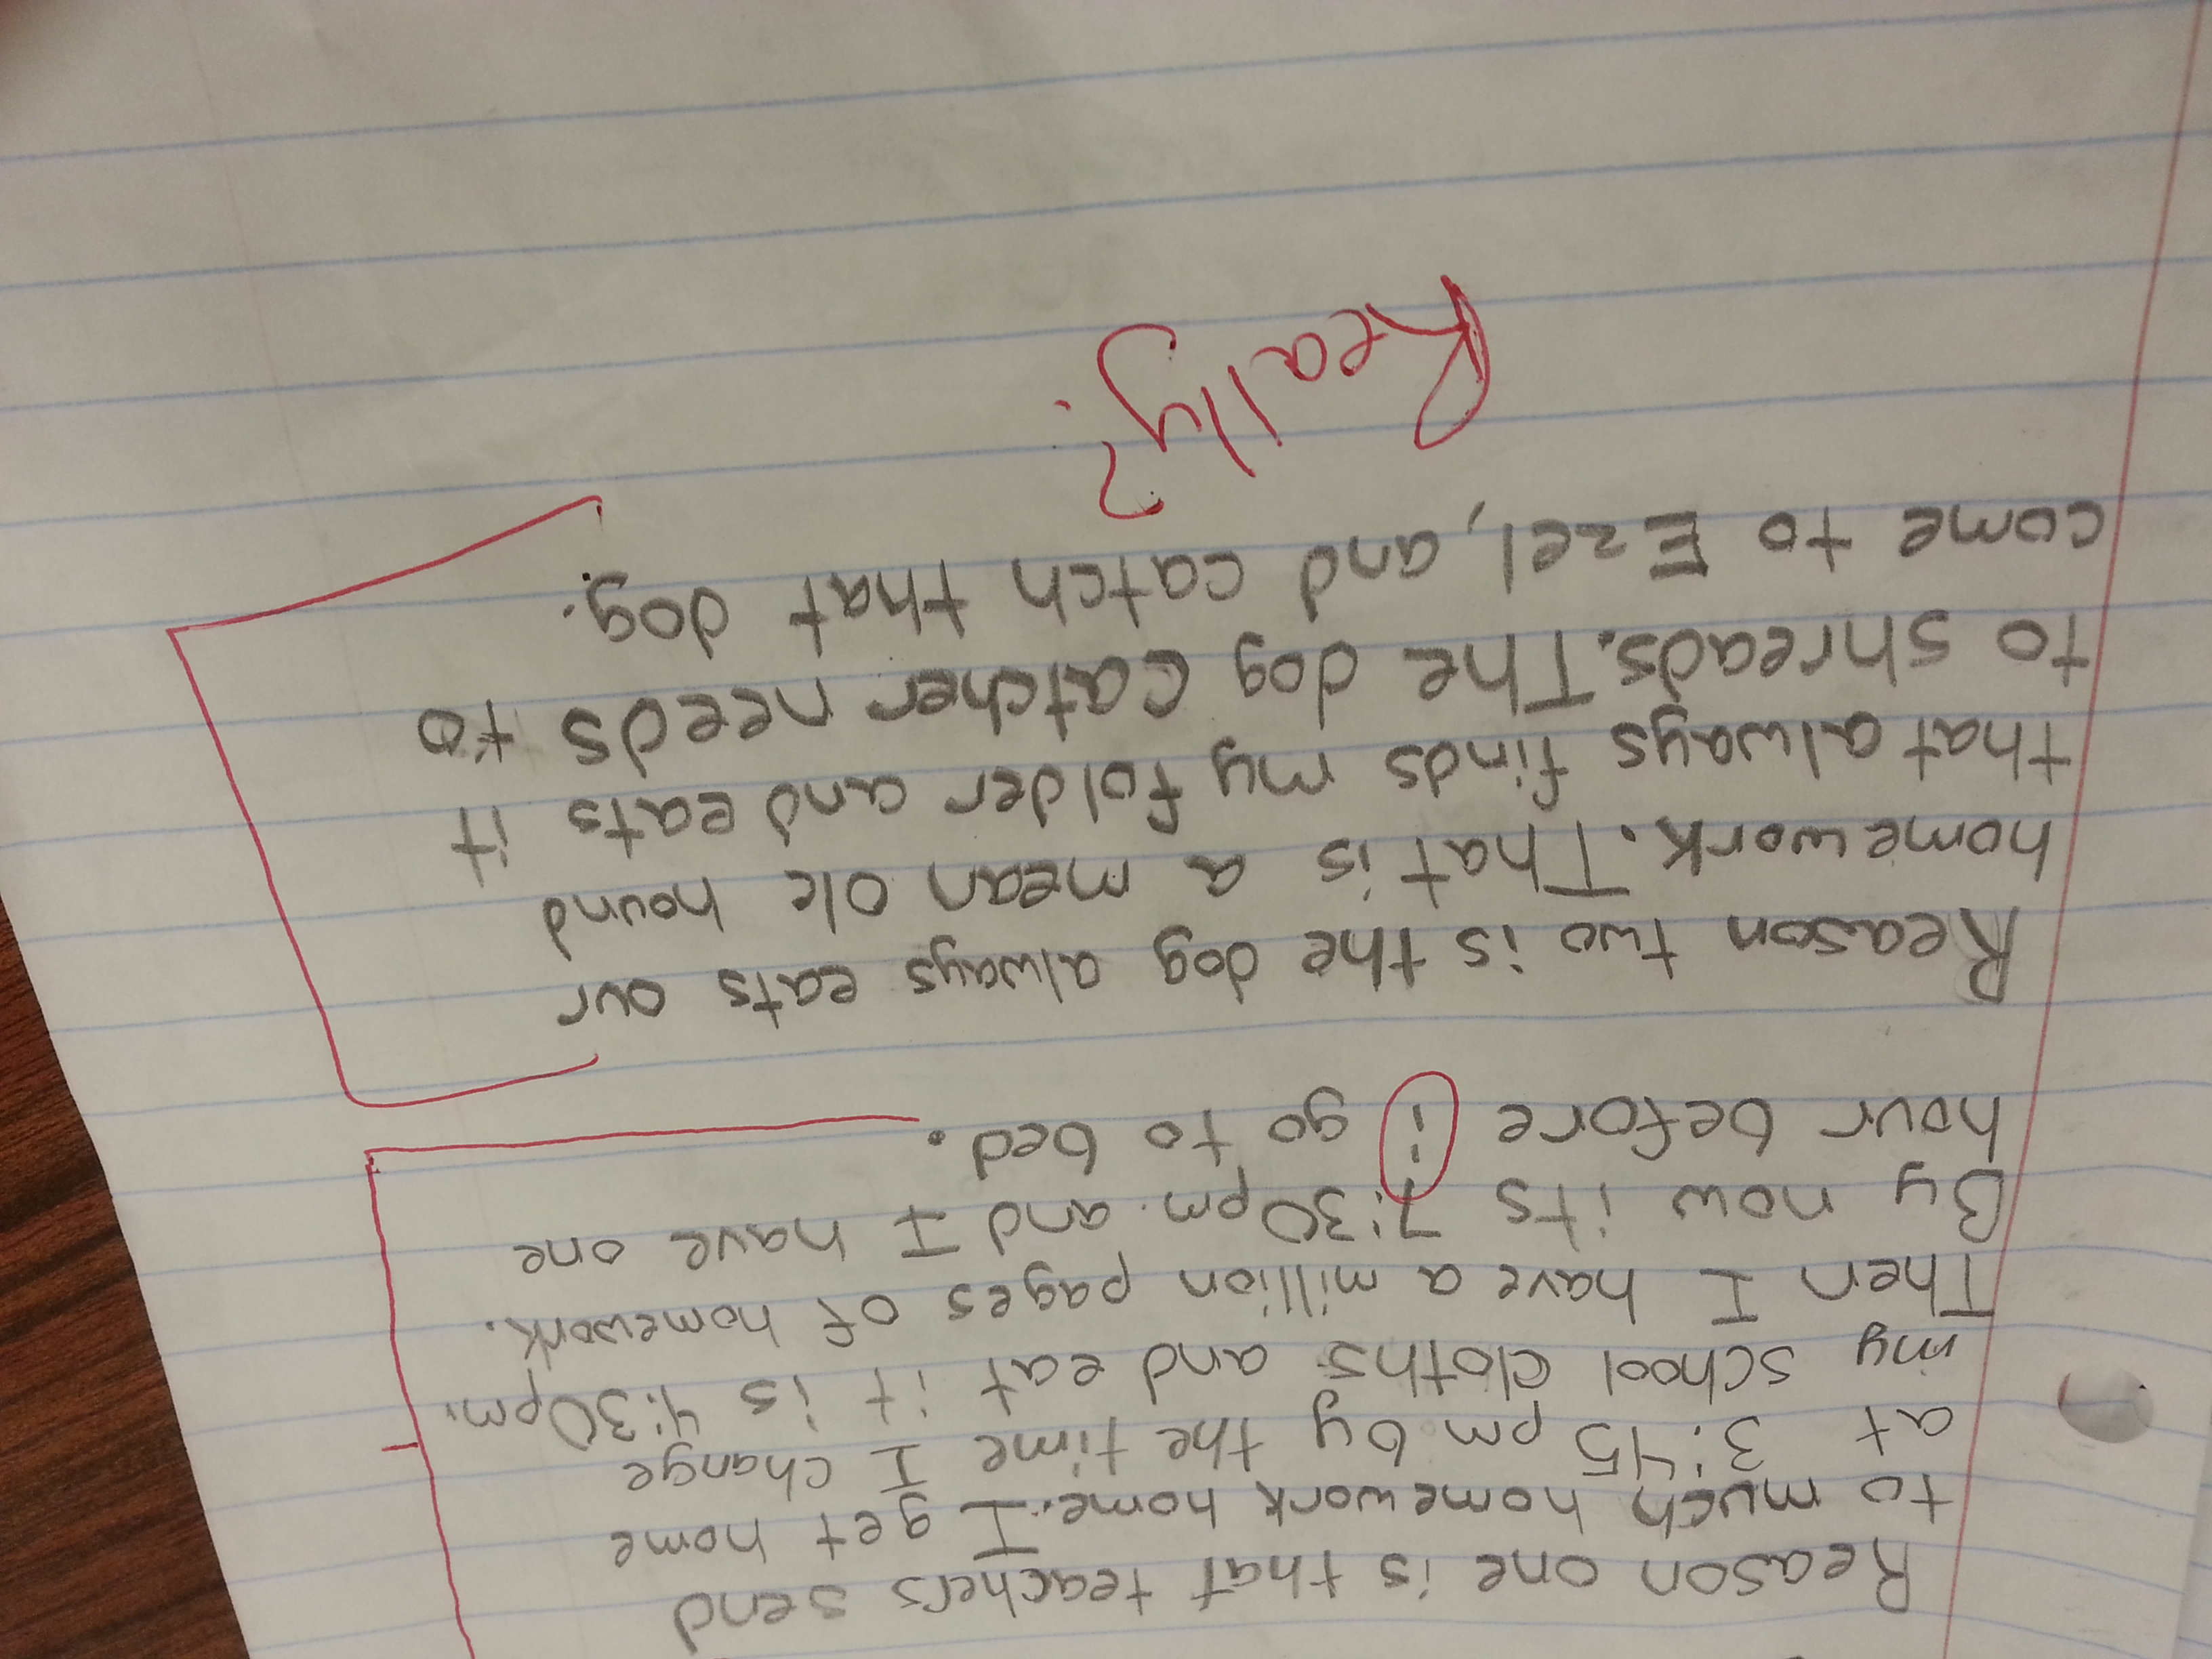 Reason one is that teachers send
to much homework home. I get home
at 3:45 pm by the time I change
my school cloths and eat it is 4:30pm.
Then I have a million pages of homework.
By now its 7:30pm and I have one
hour before i go to bed.
Reason two is the dog always eats our
homework. That is a mean ole hound
that always finds my folder and eats it
to shreads. The dog catcher needs to
come to Ezel, and catch that dog.
Really?